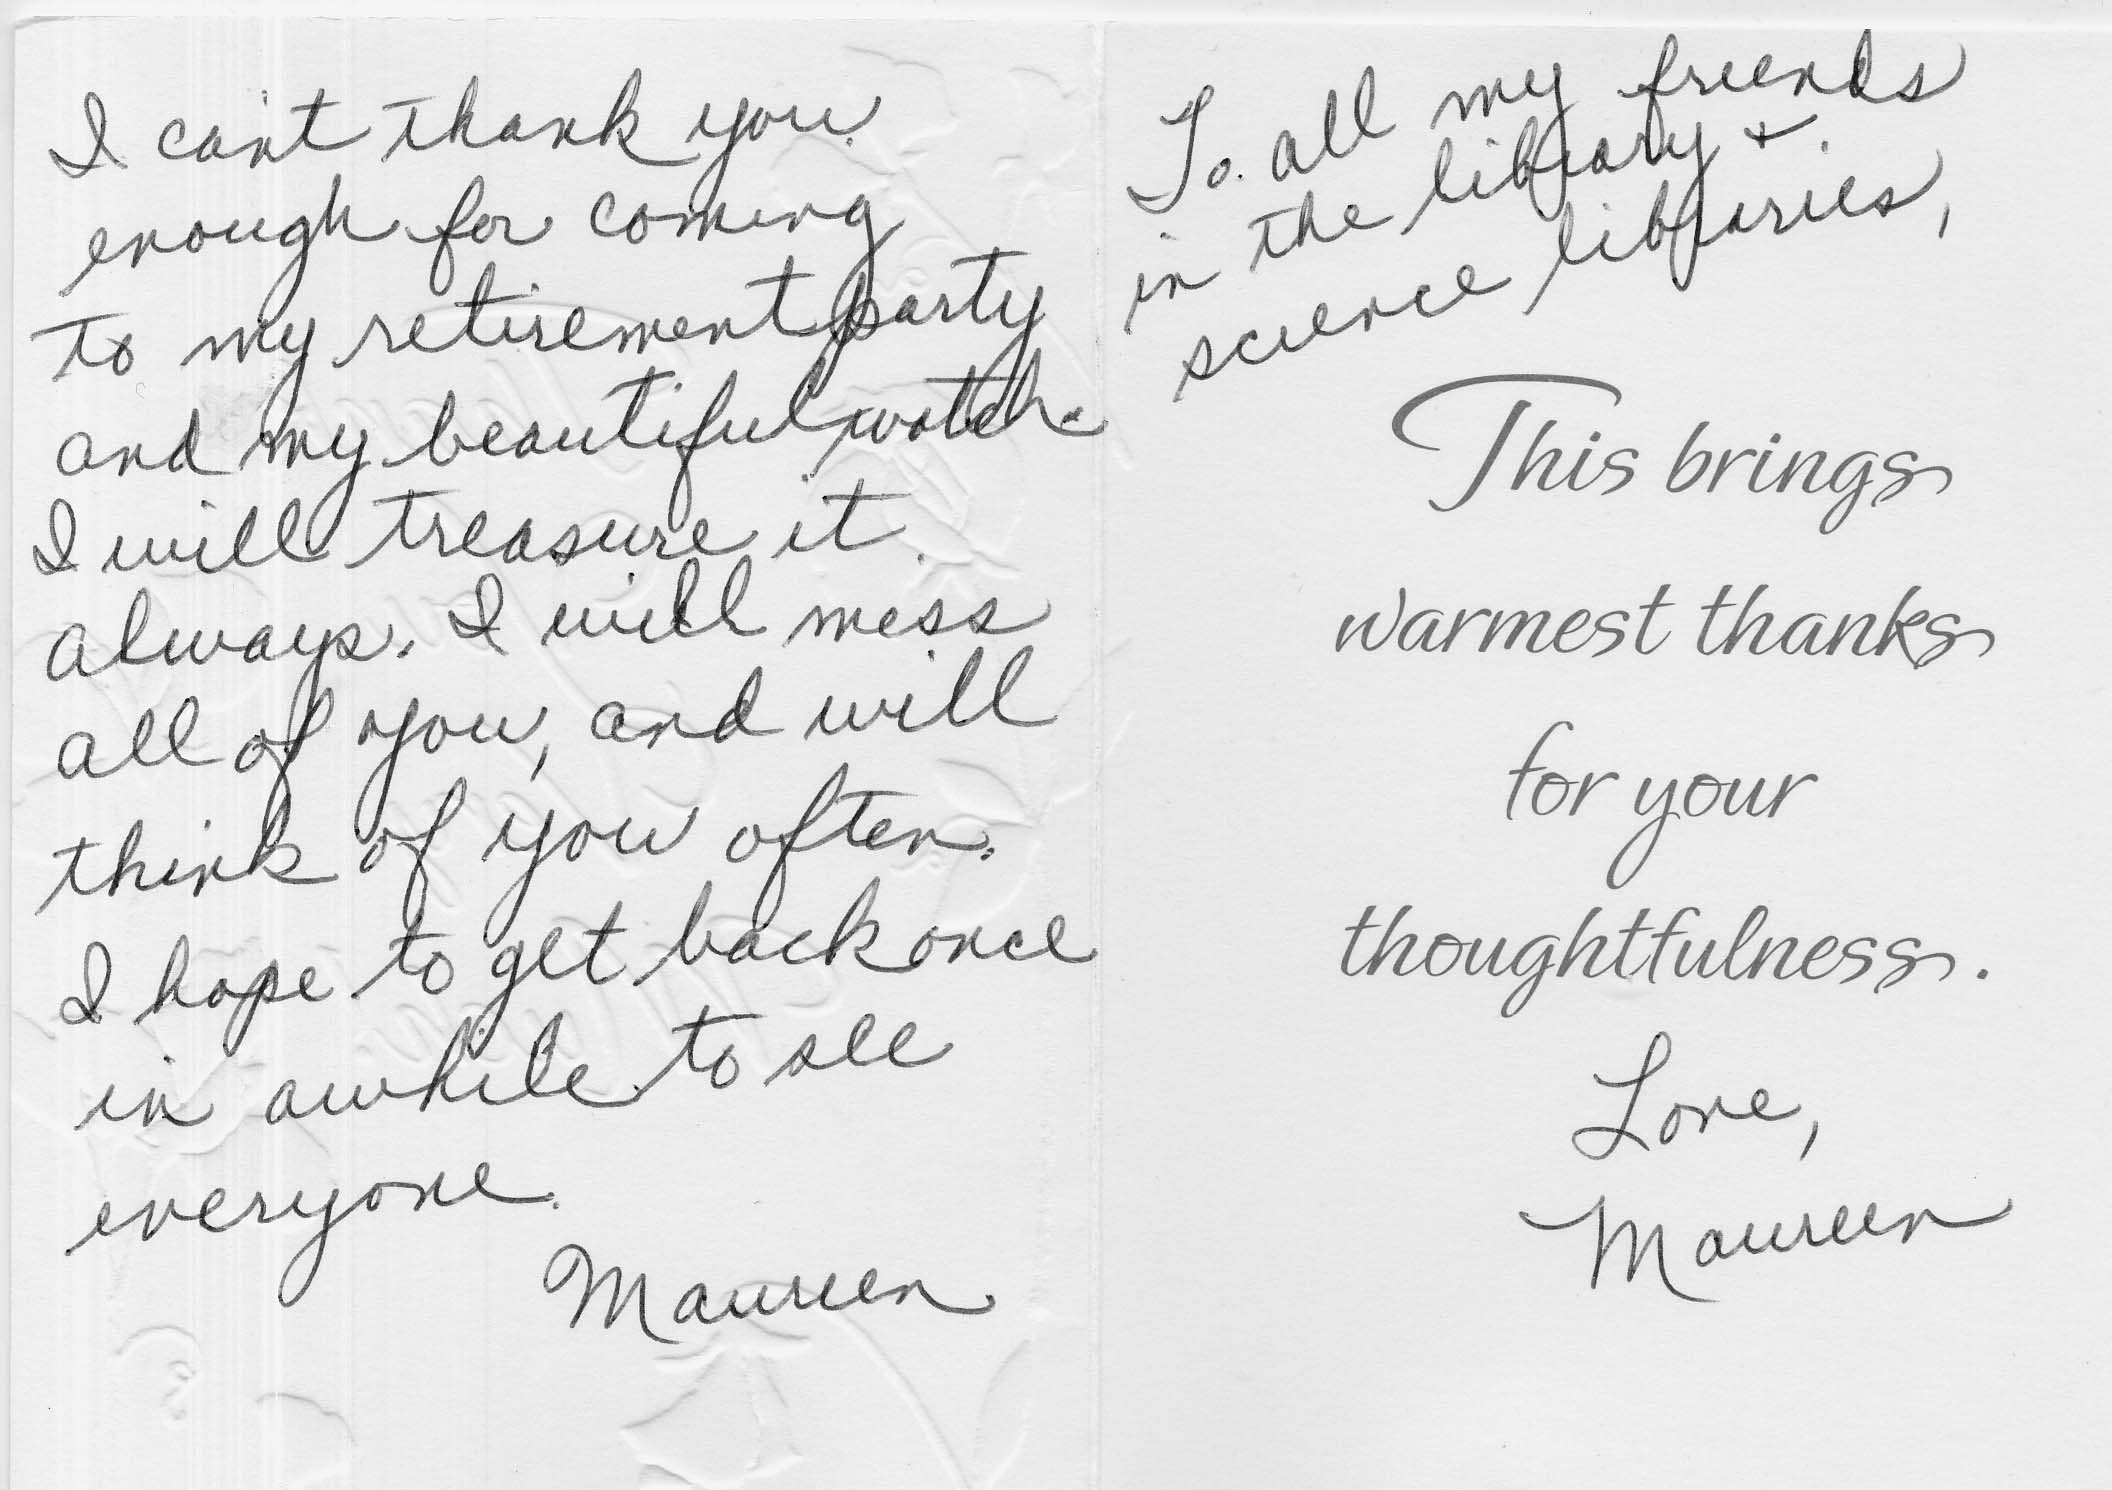 I can't thank you
enough for coming
to my retirement party
and my beautiful watch.
I will treasure it
always. I will miss
all of you, and will
think of you often.
I hope to get back once
in awhile to see
everyone.
Maureen
To all my friends
in the library +
science libraries,
This brings
warmest thanks
for your
thoughtfulness.
Love,
Maureen